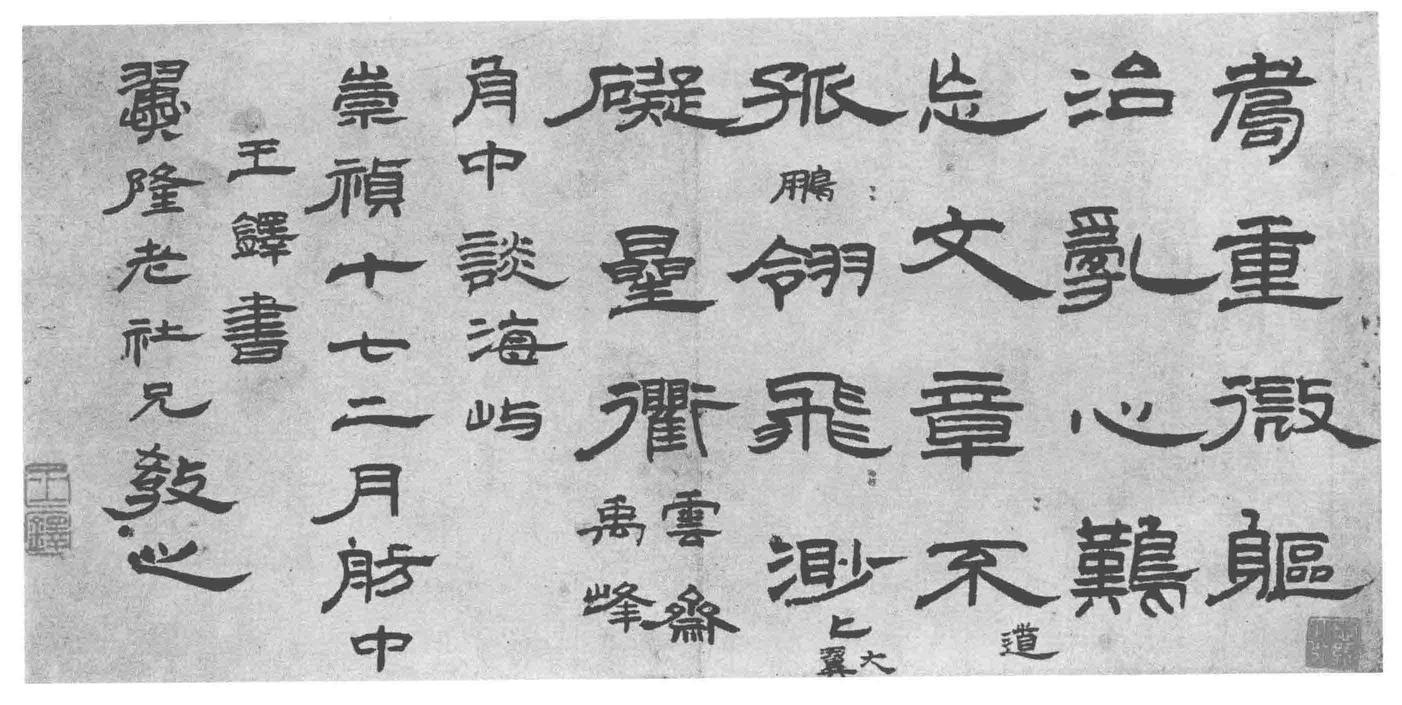 重微軀
治亂心難
忘文章不
道
孤翎飛渺
鵬
大翼
礙曐衢
雲齋
禹峰
角中談海屿
崇禎十七二月舫中
王鐸書
翼隆老社兄教之
王鐸